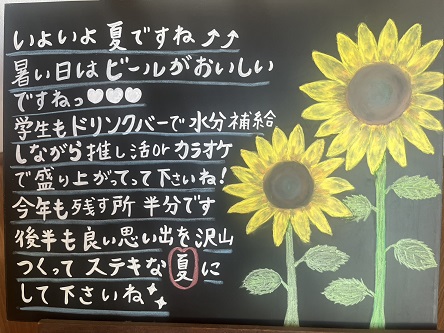 いよいよ 夏ですね⤴⤴
暑い日は ビールがおいしい
ですねっ♡♡♡
学生もドリンクバーで水分補給
しながら推し活orカラオケ
で盛り上がてって下さいね!
今年も残す所 半分です
後半も良い思い出を沢山
つくって ステキな 夏に
して下さいね